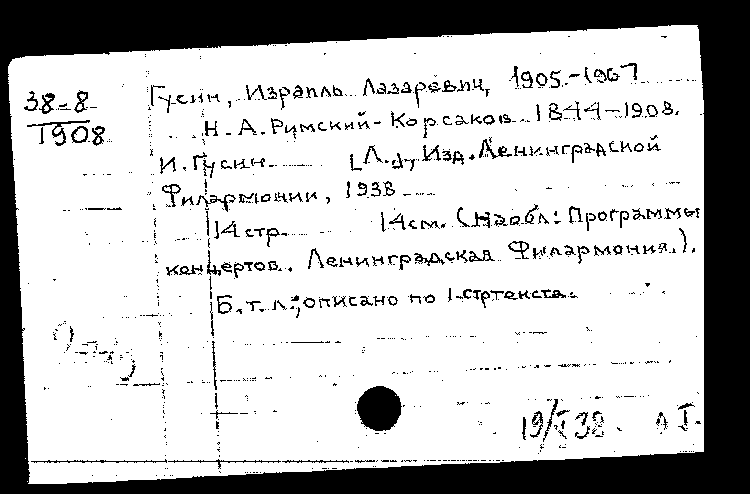 38-8
1908
Гусин, Израиль Лазаревич, 1905-1967
Н.А.Римский-Корсаков. 1844-1908.
И.Гусин. [Л.], Изд.Ленинградской
Филармонии, 1938
14 стр. 14см. (Наобл: Программы
концертов. Ленинградская Филармония.).
Б.т.л; описано по 1-стр текста.
19/X 38.